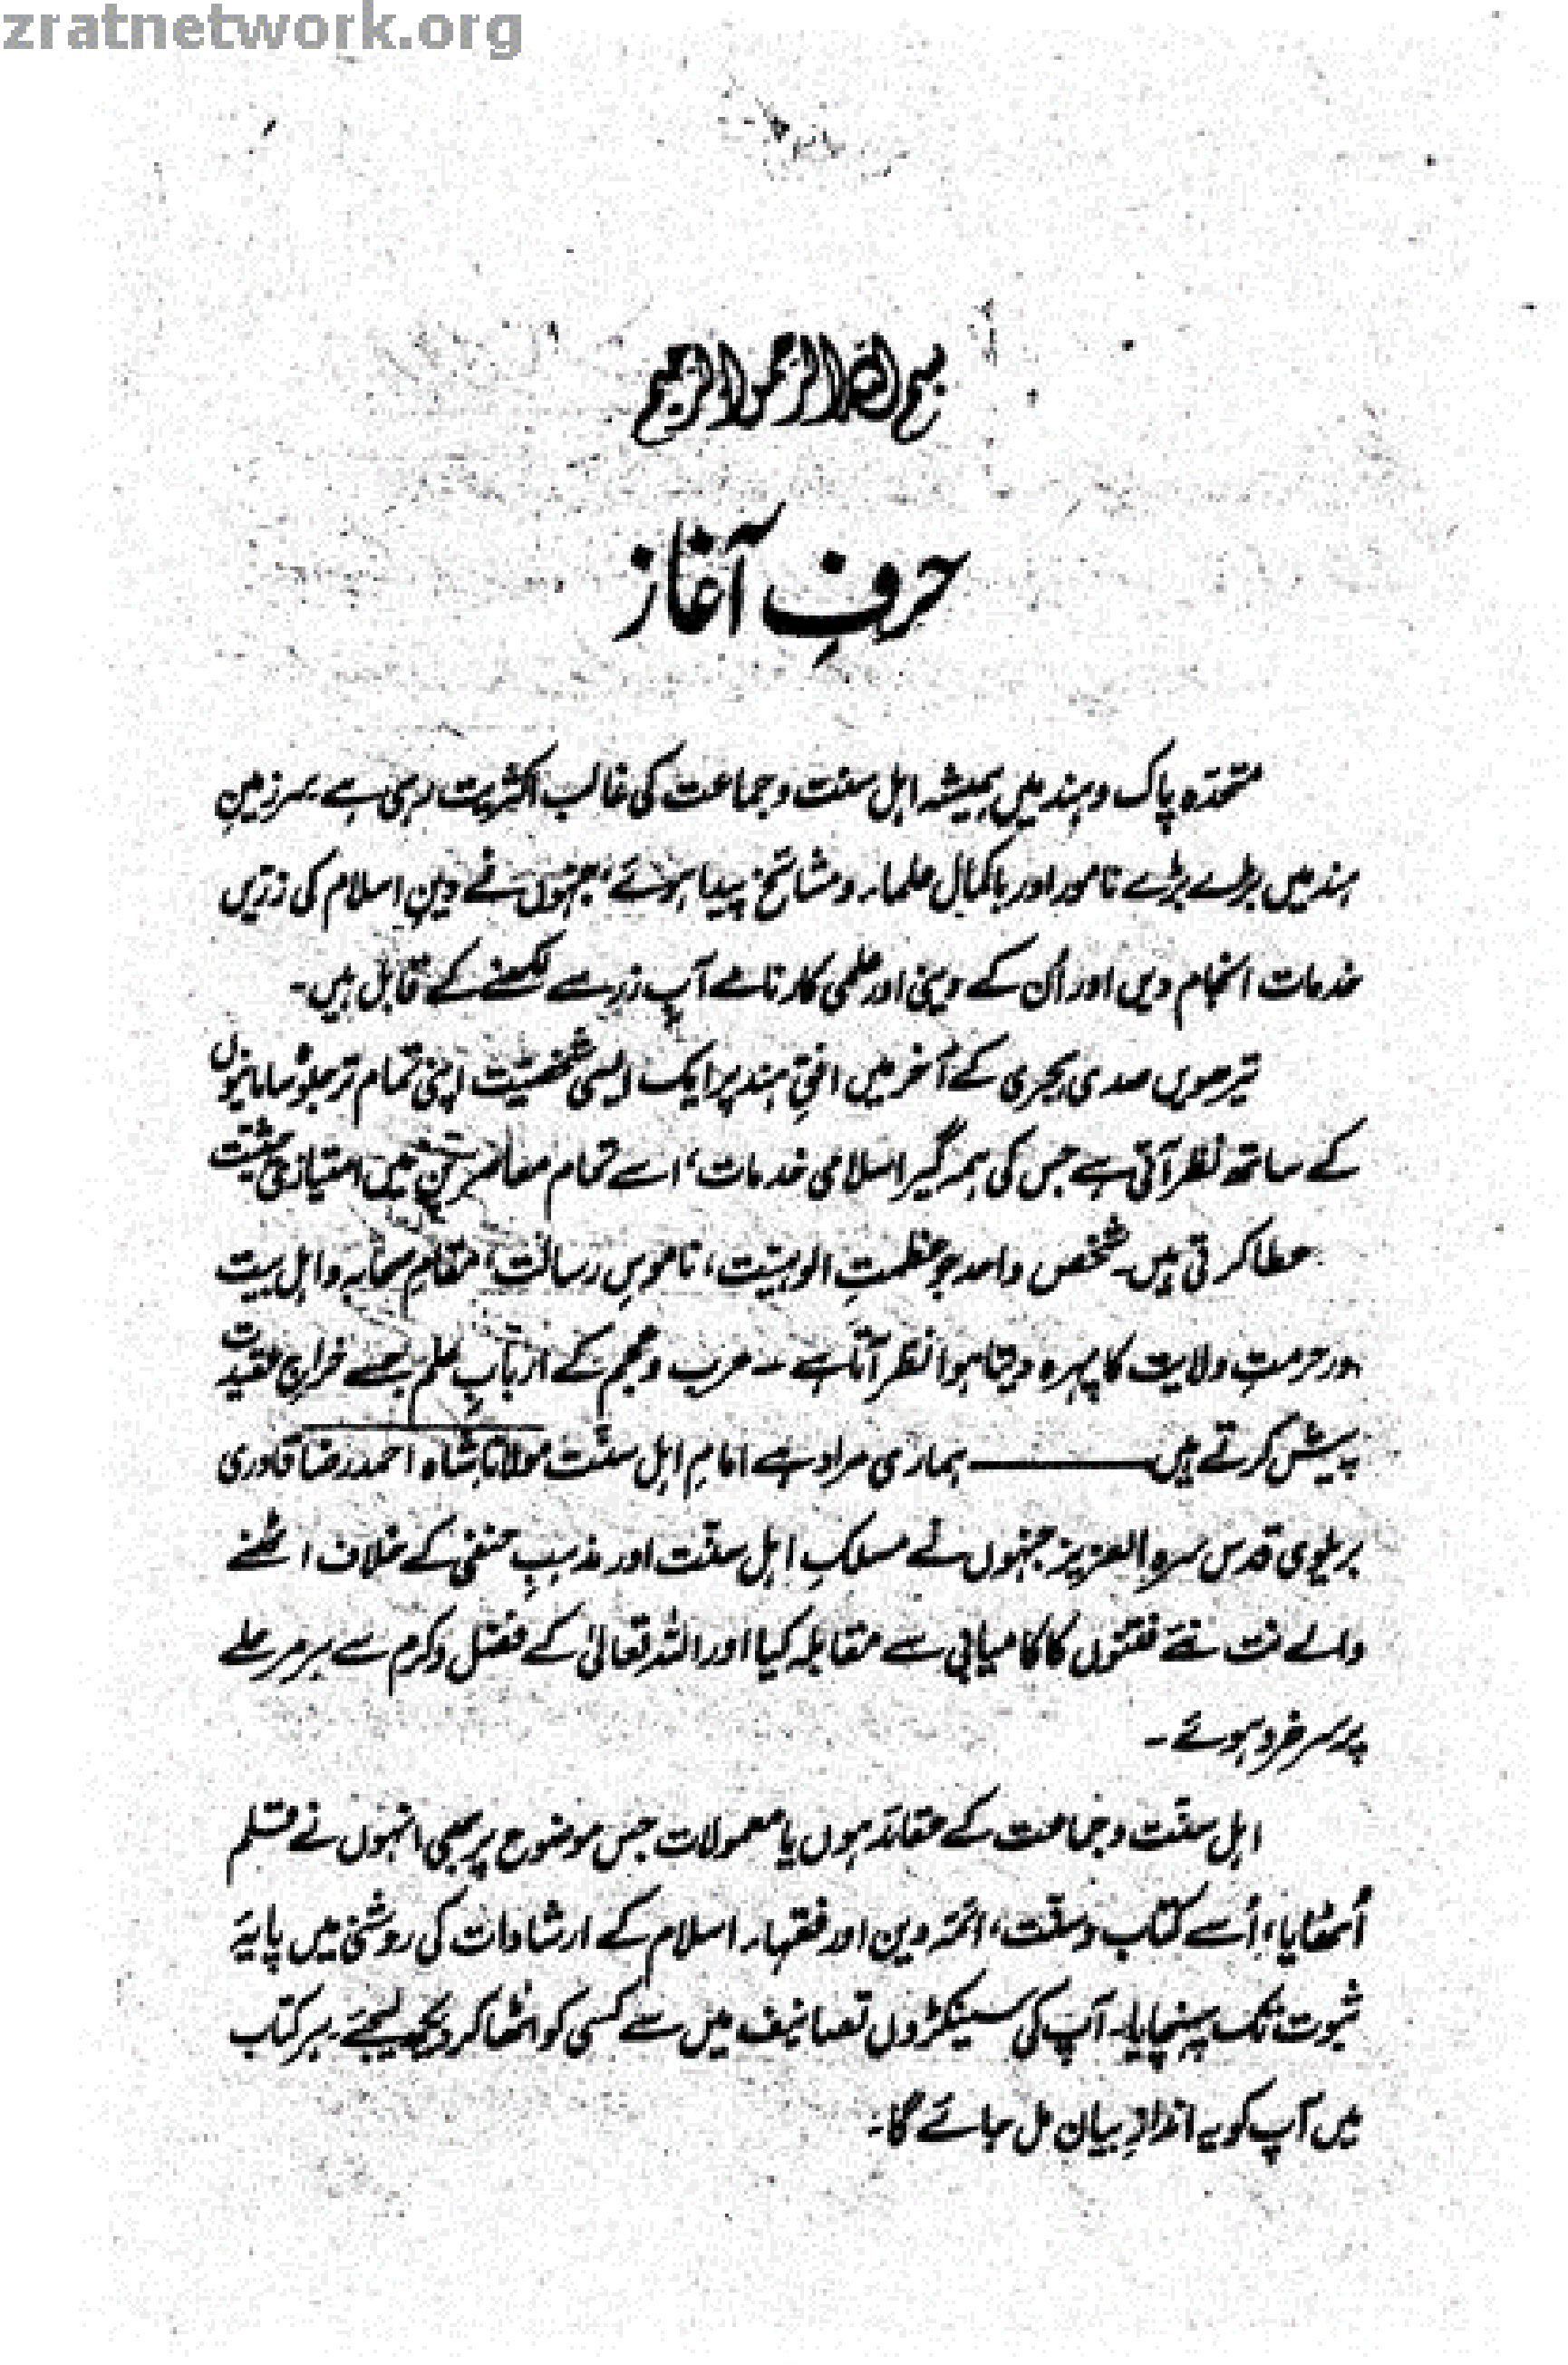 zratnetwork.org
بسم اللہ الرحمن الرحیم
حرفِ آغاز
متحدہ پاک و ہند میں ہمیشہ اہل سنت و جماعت کی غالب اکثریت رہی ہے، سرزمینِ
ہند میں بڑے بڑے نامور اور باکمال علماء و مشائخ پیدا ہوئے، جنہوں نے دینِ اسلام کی زرّیں
خدمات انجام دیں اور اُن کے دینی اور علمی کارنامے آبِ زر سے لکھنے کے قابل ہیں۔
تیرھویں صدی ہجری کے آخر میں افقِ ہند پر ایک ایسی شخصیّت اپنی تمام تر جلوہ سامانیوں
کے ساتھ نظر آتی ہے جس کی ہمہ گیر اسلامی خدمات، اسے تمام معاصرین میں امتیازی حیثیّت
عطا کرتی ہیں۔ شخص واحد جو عظمتِ الوہیّت، ناموسِ رسالت، مقامِ صحابہ و اہل بیت
اور حرمتِ ولایت کا پہرہ دیتا ہوا نظر آتا ہے ـ عرب و عجم کے اربابِ علم جسے خراجِ عقیدت
پیش کرتے ہیں ——— ہماری مراد ہے امامِ اہل سنّت مولانا شاہ احمد رضا قادری
بریلوی قدس سرہ العزیز جنہوں نے مسلکِ اہل سنّت اور مذہبِ حنفی کے خلاف اٹھنے
والے نت نئے فتنوں کا کامیابی سے مقابلہ کیا اور اللہ تعالیٰ کے فضل و کرم سے ہر مرحلے
پر سرخرو ہوئے ۔
اہل سنّت و جماعت کے عقائد ہوں یا معمولات جس موضوع پر بھی انہوں نے قلم
اُٹھایا، اُسے کتاب و سنّت، ائمۂ دین اور فقہاء اسلام کے ارشادات کی روشنی میں پایۂ
ثبوت تک پہنچایا۔ آپ کی سینکڑوں تصانیف میں سے کسی کو اٹھا کر دیکھ لیجئے۔ ہر کتاب
میں آپ کو یہ اندازِ بیان مل جائے گا۔